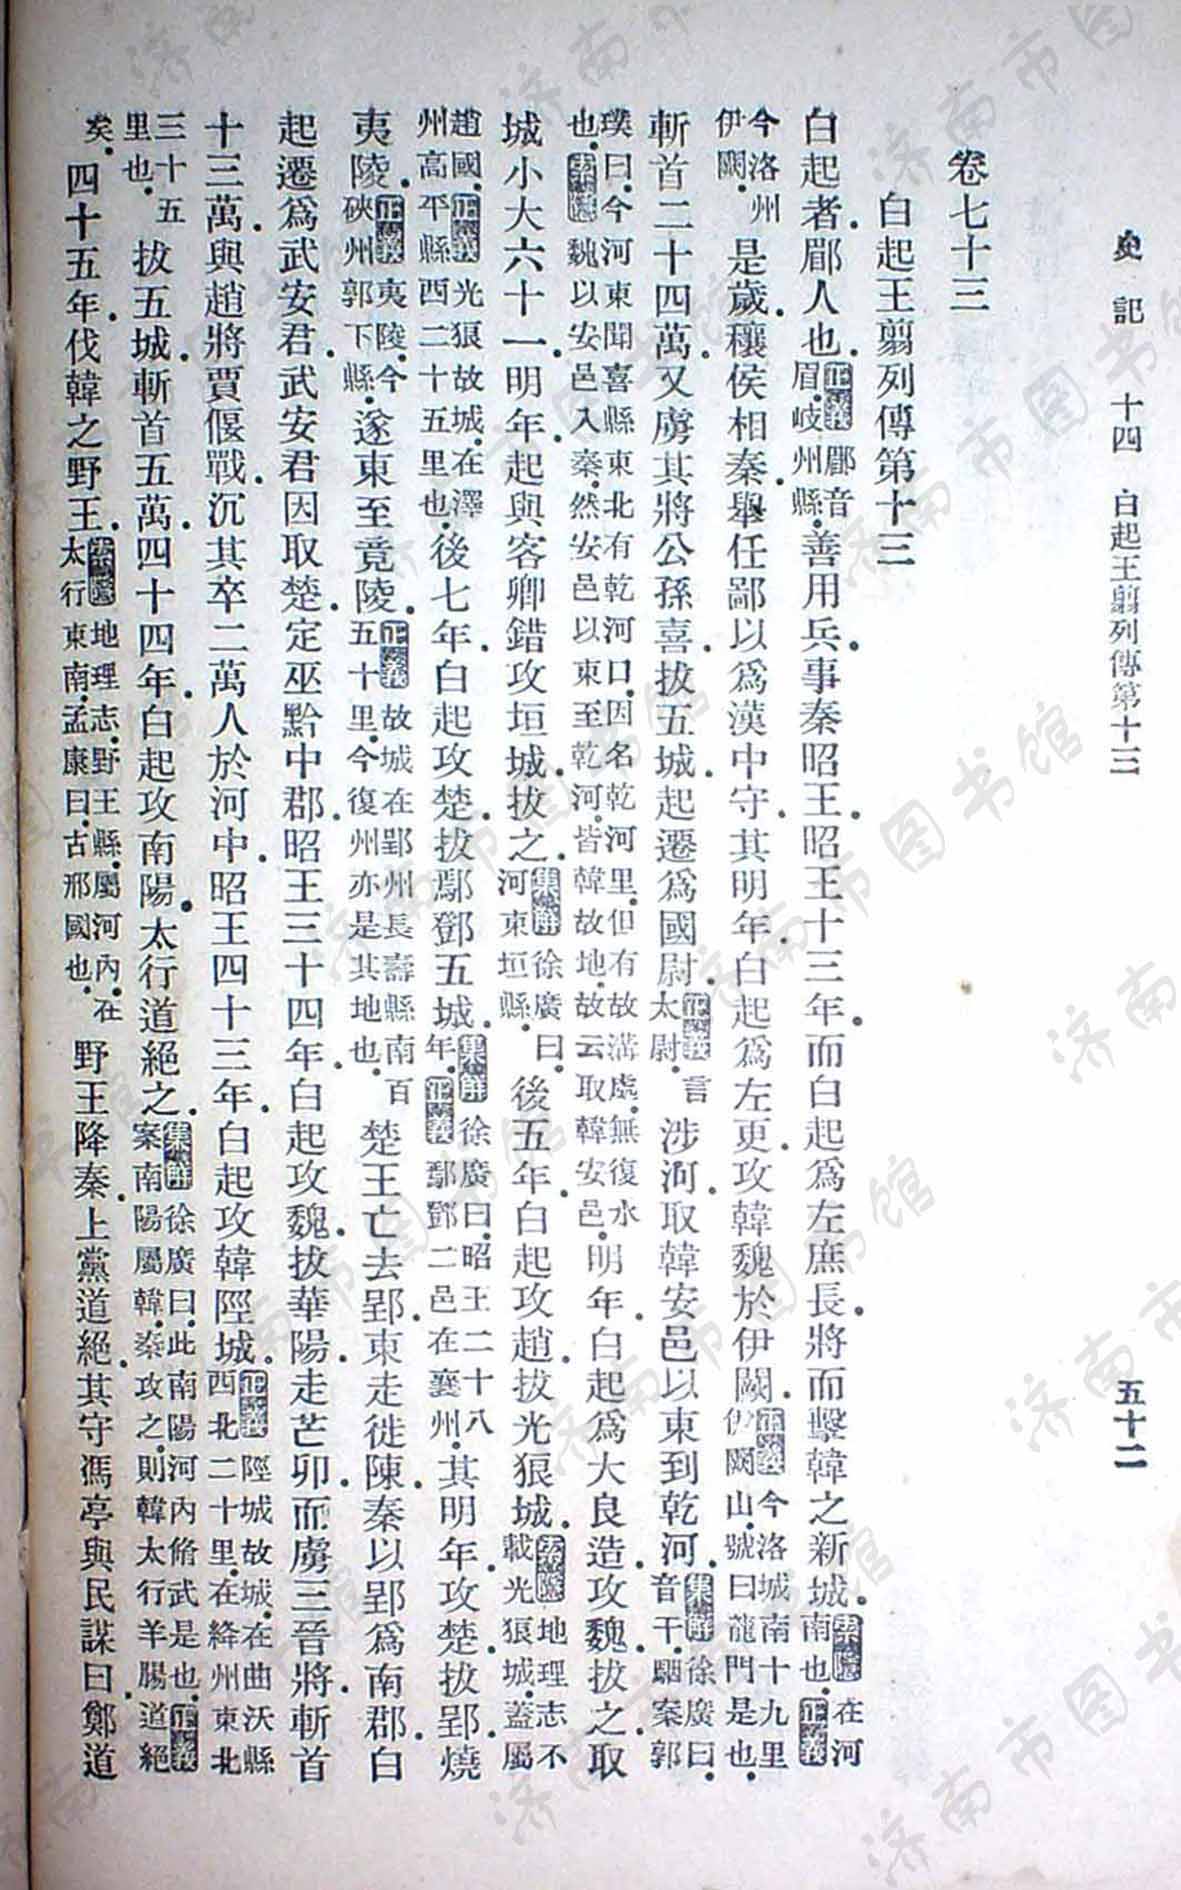 史記　十四　白起王翦列傳第十三　五十二
卷七十三
白起王翦列傳第十三
白起者。郿人也。正義郿音眉。岐州縣。善用兵。事秦昭王。昭王十三年。而白起爲左庶長。將而擊韓之新城。索隱在河南也。正義
今洛州伊闕。是歲。穰侯相秦。舉任鄙以爲漢中守。其明年。白起爲左更。攻韓魏於伊闕。正義今洛城南十九里伊闕山。號曰龍門是也。
斬首二十四萬。又虜其將公孫喜。拔五城。起遷爲國尉。正義言太尉。涉河。取韓安邑以東到乾河。集解徐廣曰。音干。駰案郭
璞曰。今河東聞喜縣東北有乾河口。因名乾河里。但有故溝處。無復水也。索隱魏以安邑入秦。然安邑以東至乾河。皆韓故地。故云取韓安邑。明年。白起爲大良造。攻魏。拔之。取
城小大六十一。明年。起與客卿錯攻垣城。拔之。集解徐廣曰。河東垣縣。後五年。白起攻趙。拔光狼城。索隱地理志不載光狼城。蓋屬
趙國。正義光狼故城。在澤州高平縣西二十五里也。後七年。白起攻楚。拔鄢鄧五城。集解徐廣曰。昭王二十八年。正義鄢鄧二邑在襄州。其明年。攻楚。拔郢。燒
夷陵。正義夷陵。今硤州郭下縣。遂東至竟陵。正義故城在郢州長壽縣南百五十里。今復州亦是其地也。楚王亡去郢。東走徙陳。秦以郢爲南郡。白
起遷爲武安君。武安君因取楚。定巫黔中郡。昭王三十四年。白起攻魏。拔華陽。走芒卯。而虜三晉將。斬首
十三萬。與趙將賈偃戰。沉其卒二萬人於河中。昭王四十三年。白起攻韓陘城。正義陘城故城。在曲沃縣西北二十里。在絳州東北
三十五里也。拔五城。斬首五萬。四十四年。白起攻南陽。太行道絕之。集解徐廣曰。此南陽河內脩武是也。正義案南陽屬韓。秦攻之。則韓太行羊腸道絕
矣。四十五年。伐韓之野王。索隱地理志。野王縣。屬河內。在太行東南。孟康曰。古邢國也。野王降秦。上黨道絕。其守馮亭與民謀曰。鄭道
济南市图书馆